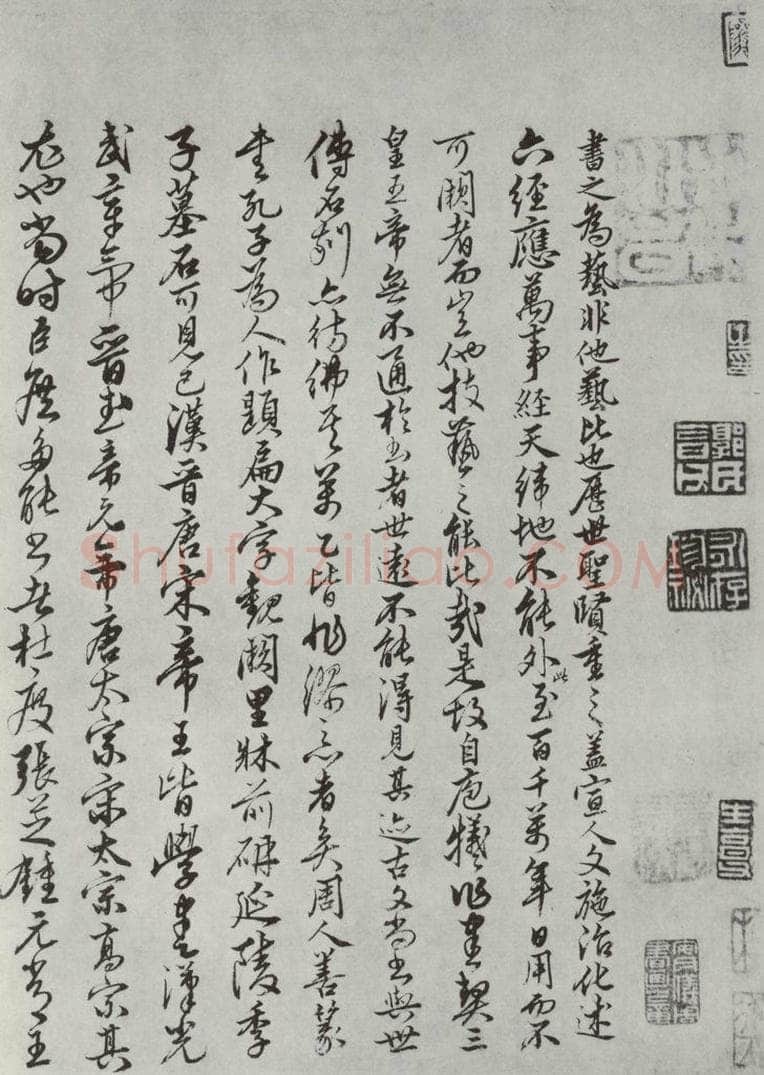 書之為藝非他藝比也歷世聖賢重之蓋宣人文施治化述
六經應萬事經天緯地不能外此至百千萬年日用而不
可闕者而豈他技藝之能比哉是故自庖犧作書契三
皇五帝無不通於書者世遠不能得見其迹古文尚書與世
傳石刻亦彷彿其萬乙皆非繆者矣周人善篆
書孔子為人作題扁大字觀闕里牀前碑延陵季
子墓石可見已漢晉唐宋帝王皆學書漢光
武章帝晉武帝元帝唐太宗宋太宗高宗其
尤也當時臣庶多能書者杜度張芝鍾元常王
Shufaziliao.COM